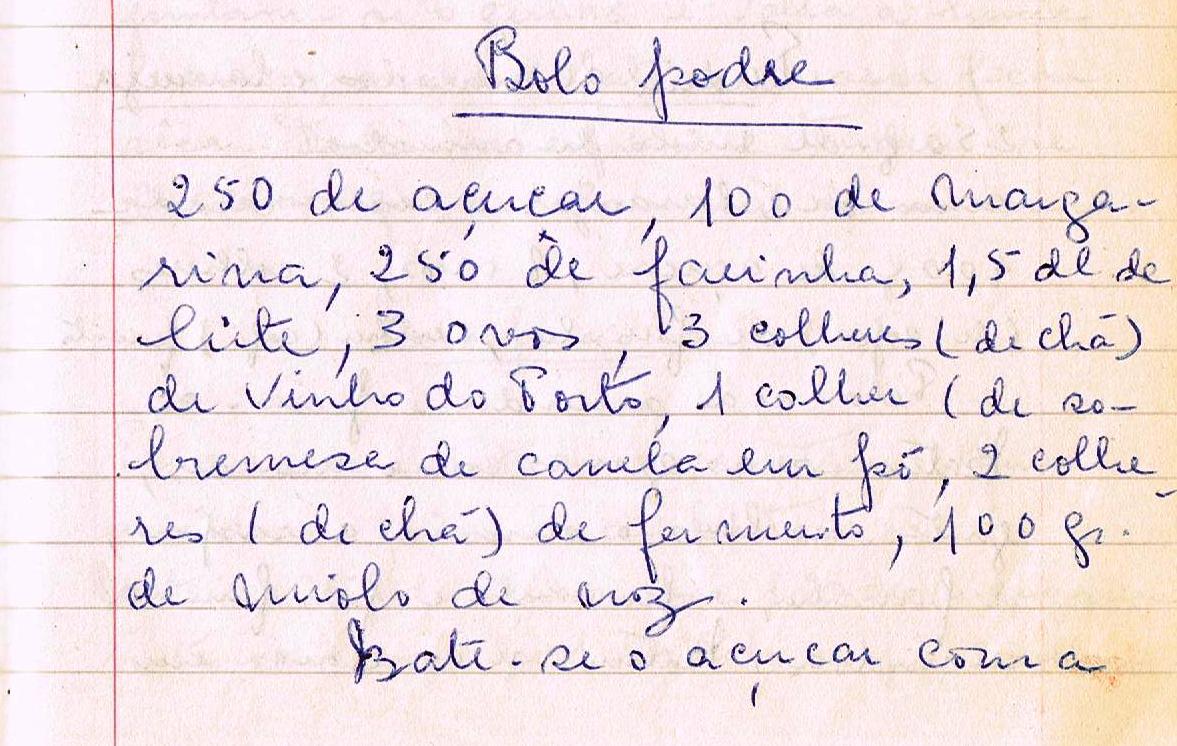 Bolo podre
250 de açucar, 100 de marga-
rina, 250 de farinha, 1,5 dl de
leite, 3 ovos, 3 colheres (de chá)
de Vinho do Porto, 1 colher (de so-
bremesa de canela em pó, 2 colhe-
res (de chá) de fermento, 100 gr.
de miolo de noz.
Bate-se o açucar com a